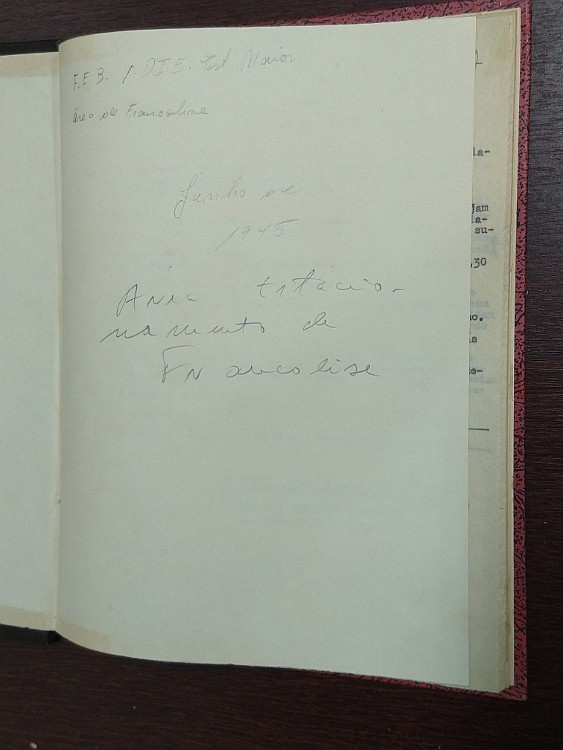 F.E.B. 1. DIE. Est Maior
área de Francolise
Junho de
1945
Área Estacio-
namento de
Francolise
1
la-
jam
la-
su-
30
o.
s
e-